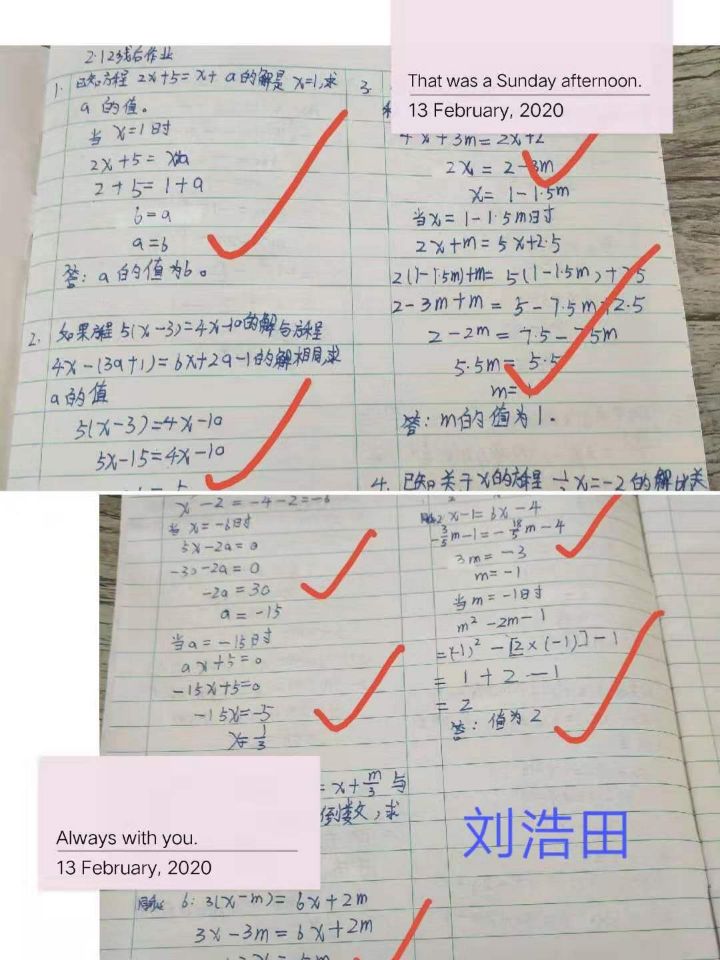 That was a Sunday afternoon.
13 February, 2020
2.12线后作业
1. 已知方程 2x+5=x+a的解是x=1,求
a的值。
当x=1时
2x+5=x+a
2+5=1+a
6=a
a=6
答:a的值为6。
2. 如果方程5(x-3)=4x-10的解与方程
4x-(3a+1)=6x+2a-1的解相同,求
a的值
5(x-3)=4x-10
5x-15=4x-10
3.
4x+3m=2x+2
2x=2-3m
x=1-1.5m
当x=1-1.5m时
2x+m=5x+2.5
2(1-1.5m)+m=5(1-1.5m)+2.5
2-3m+m=5-7.5m+2.5
2-2m=7.5-7.5m
5.5m=5.5
m=1
答:m的值为1。
4. 已知关于x的方程 x=-2的解比关
x-2=-4-2=-6
当x=-6时
5x-2a=0
-30-2a=0
-2a=30
a=-15
当a=-15时
ax+5=0
-15x+5=0
-15x=-5
x=1/3
=x+m/3与
倒数,求
6: 3(x-m)=6x+2m
3x-3m=6x+2m
x-1=6x-4
-3/5m-1=-18/5m-4
3m=-3
m=-1
当m=-1时
m²-2m-1
=(-1)²-[2×(-1)]-1
=1+2-1
=2
答:值为2
刘浩田
Always with you.
13 February, 2020